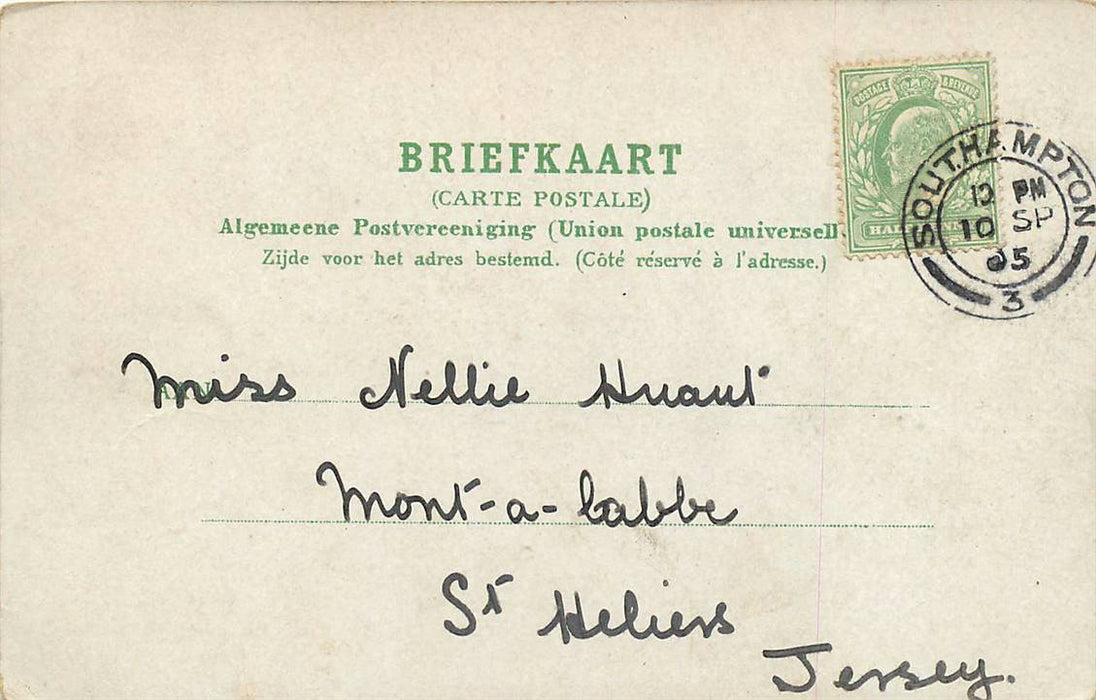 BRIEFKAART
(CARTE POSTALE)
Algemeene Postvereeniging (Union postale universell
Zijde voor het adres bestemd. (Côté réservé à l'adresse.)
POSTAGE & REVENUE
HAL
SOUTHAMPTON
PM
10 SP
05
3
Miss Nellie Huaut
Mont-a-labbe
St Heliers
Jersey.